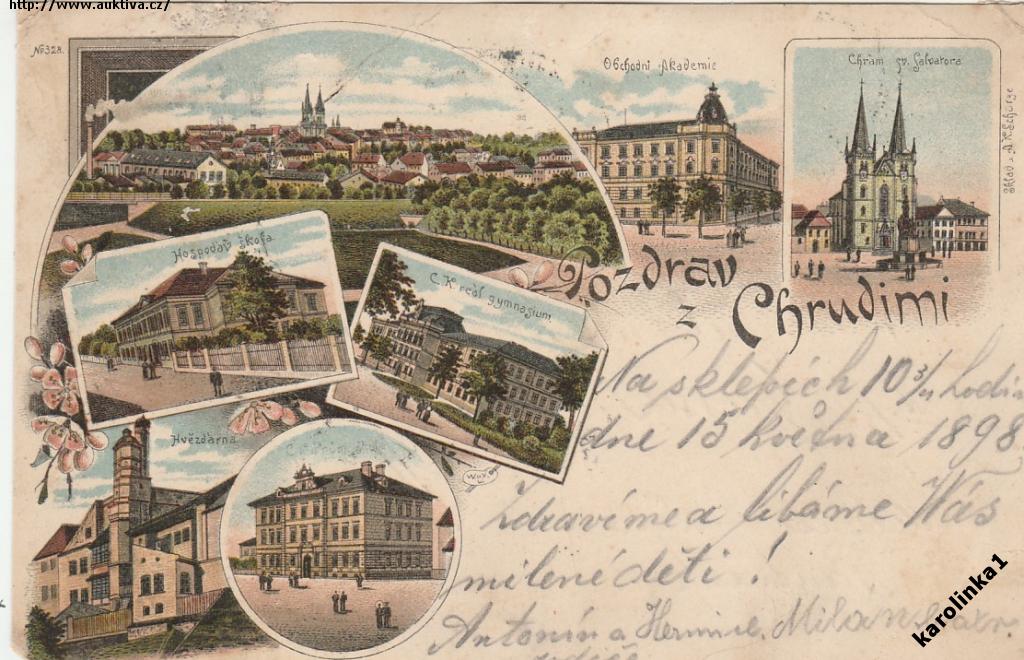 http://www.auktiva.cz/
No 328.
Obchodní Akademie
Chrám sv. Salvatora
Hospodář. škola
C. K. reál. gymnasium.
Pozdrav
z Chrudimi
Hvězdárna
Na sklepích 10 3/4 hodin
dne 15 května 1898
Zdravíme a líbáme Vás
milené děti!
Antonín a
karolinka1